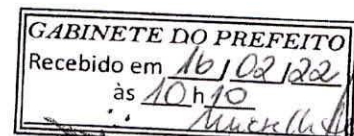 GABINETE DO PREFEITO
Recebido em 16/02/22
às 10h10